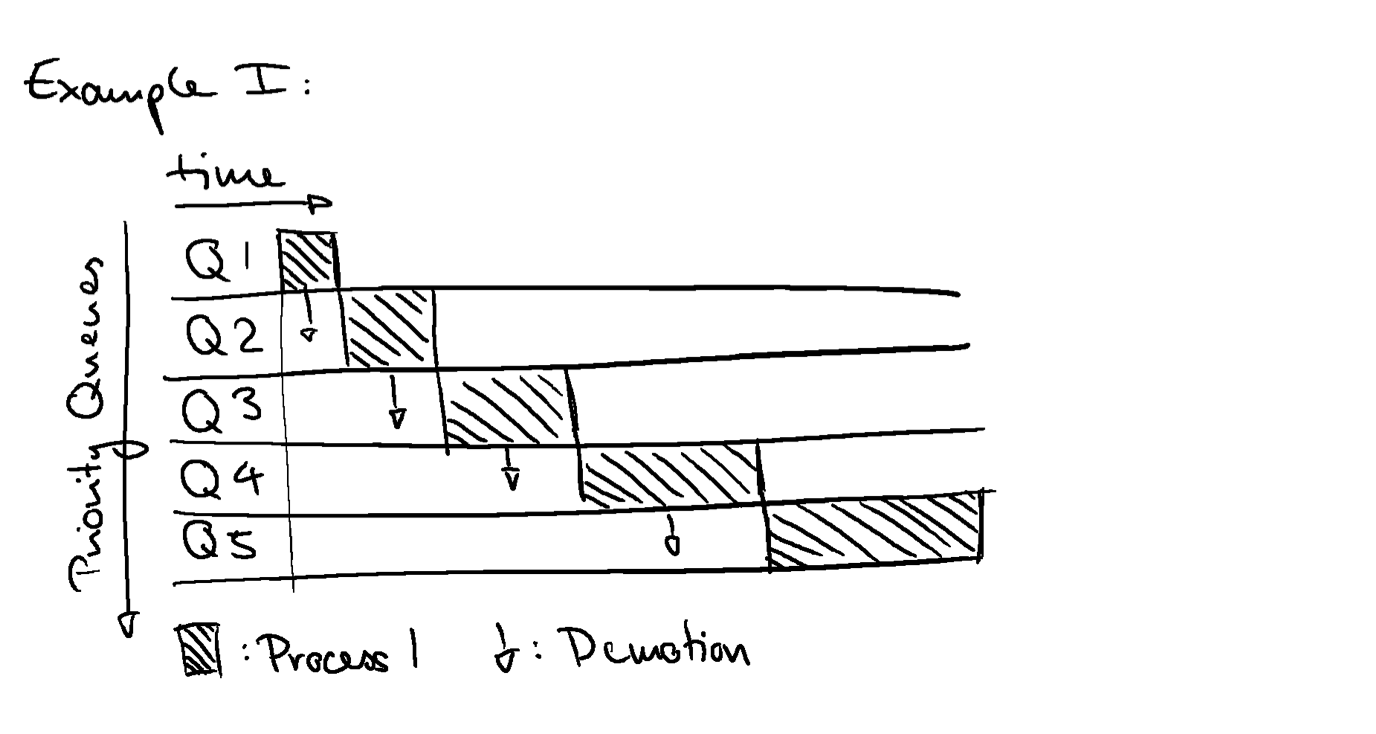 Example I:
time
Priority Queues
Q1
Q2
Q3
Q4
Q5
: Process 1
: Demotion